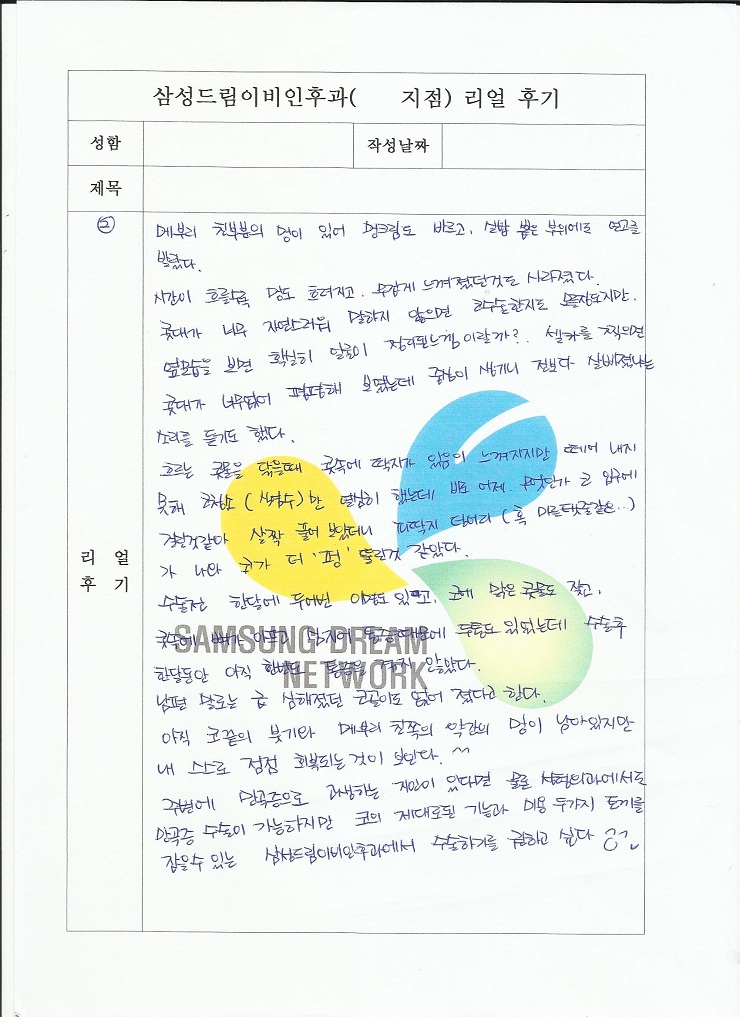 삼성드림이비인후과( 지점) 리얼 후기
성함 작성날짜
제목
② 메부리 친부분의 멍이 있어 멍크림도 바르고, 실밥 뽑은 부위에도 연고를
발랐다.
시간이 흐를수록 멍도 흐려지고, 무겁게 느껴졌던것도 사라졌다.
콧대가 너무 자연스러워 말하지 않으면 코수술한지도 모를정도지만,
옆모습을 보면 확실히 얼굴이 정리된느낌이랄까? 셀카를 찍으면
콧대가 너무없어 평평해 보였는데 중심이 생기니 전보다 살빠졌냐는
소리를 듣기도 했다.
흐르는 콧물을 닦을때 콧속에 딱지가 있음이 느껴지지만 떼어 내지
못해 코청소 (식염수)만 열심히 했는데 바로 어제. 무엇인가 코 입구에
걸린것같아 살짝 풀어 보았더니 피딱지 덩어리 (혹 미로탯줄같은...)
가 나와 코가 더 '펑' 뚫린것 같았다.
수술전 한달에 두어번 이염도 있었고, 코에 맑은 콧물도 잦고,
콧속에 뼈가 아프고 통증때문에 두통도 있었는데 수술후
한달동안 아직 한번도 겪지 않았다.
남편 말로는 좀 심해졌던 코골이도 없어 졌다고 한다.
아직 코끝의 붓기와 메부리 친쪽의 약간의 멍이 남아있지만
내 스스로 점점 회복되는 것이 보인다. ^^
주변에 만곡증으로 고생하는 지인이 있다면 물론 성형외과에서도
만곡증 수술이 가능하지만 코의 제대로된 기능과 미용 두가지 토끼를
잡을수 있는 삼성드림이비인후과에서 수술하기를 권하고 싶다
리얼
후기
SAMSUNG DREAM
NETWORK